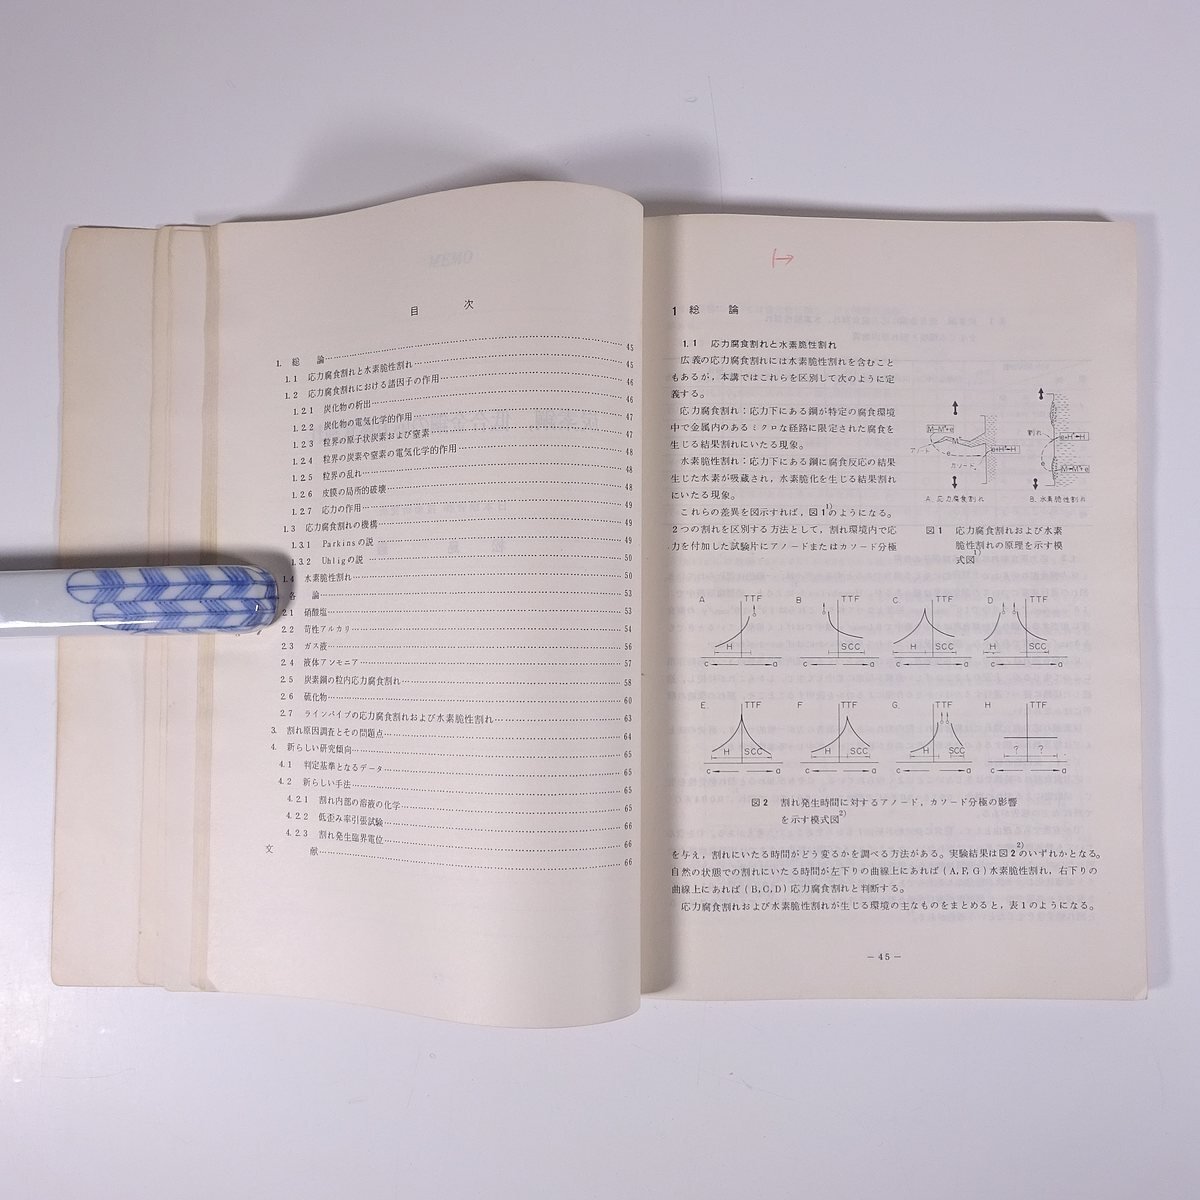 目　次
1. 総　論 45
1.1 応力腐食割れと水素脆性割れ 45
1.2 応力腐食割れにおける諸因子の作用 46
1.2.1 炭化物の析出 46
1.2.2 炭化物の電気化学的作用 47
1.2.3 粒界の原子状炭素および窒素 47
1.2.4 粒界の炭素や窒素の電気化学的作用 48
1.2.5 粒界の乱れ 48
1.2.6 皮膜の局所的破壊 48
1.2.7 応力の作用 49
1.3 応力腐食割れの機構 49
1.3.1 Parkinsの説 49
1.3.2 Uhligの説 50
1.4 水素脆性割れ 50
各　論 53
2.1 硝酸塩 53
2.2 苛性アルカリ 54
2.3 ガス液 56
2.4 液体アンモニア 57
2.5 炭素鋼の粒内応力腐食割れ 58
2.6 硫化物 60
2.7 ラインパイプの応力腐食割れおよび水素脆性割れ 63
3. 割れ原因調査とその問題点 64
4. 新らしい研究傾向 65
4.1 判定基準となるデータ 65
4.2 新らしい手法 65
4.2.1 割れ内部の溶液の化学 65
4.2.2 低歪み率引張試験 66
4.2.3 割れ発生臨界電位 66
文　献 66
1 総　論
1.1 応力腐食割れと水素脆性割れ
広義の応力腐食割れには水素脆性割れを含むこと
もあるが，本講ではこれらを区別して次のように定
義する。
応力腐食割れ：応力下にある鋼が特定の腐食環境
中で金属内のあるミクロな経路に限定された腐食を
生じる結果割れにいたる現象。
水素脆性割れ：応力下にある鋼に腐食反応の結果
生じた水素が吸蔵され，水素脆化を生じる結果割れ
にいたる現象。
これらの差異を図示すれば，図1¹⁾のようになる。
2つの割れを区別する方法として，割れ環境内で応
力を付加した試験片にアノードまたはカソード分極
M→M⁺+e
M⁺
e+H⁺→H
アノード
e
カソード
A. 応力腐食割れ
割れ
e+H⁺→H
e
M→M⁺+e
B. 水素脆性割れ
図1 応力腐食割れおよび水素
脆性割れの原理を示す模
式図¹⁾
A TTF B TTF C TTF D TTF
H SCC H SCC H SCC
c a c a c a c a
E TTF F TTF G TTF H TTF
H SCC H SCC H SCC ? ?
c a c a c a c a
図2 割れ発生時間に対するアノード，カソード分極の影響
を示す模式図²⁾
を与え，割れにいたる時間がどう変るかを調べる方法がある。実験結果は図2²⁾のいずれかとなる。
自然の状態での割れにいたる時間が左下りの曲線上にあれば(A,F,G)水素脆性割れ，右下りの
曲線上にあれば(B,C,D)応力腐食割れと判断する。
応力腐食割れおよび水素脆性割れが生じる環境の主なものをまとめると，表1のようになる。
－45－